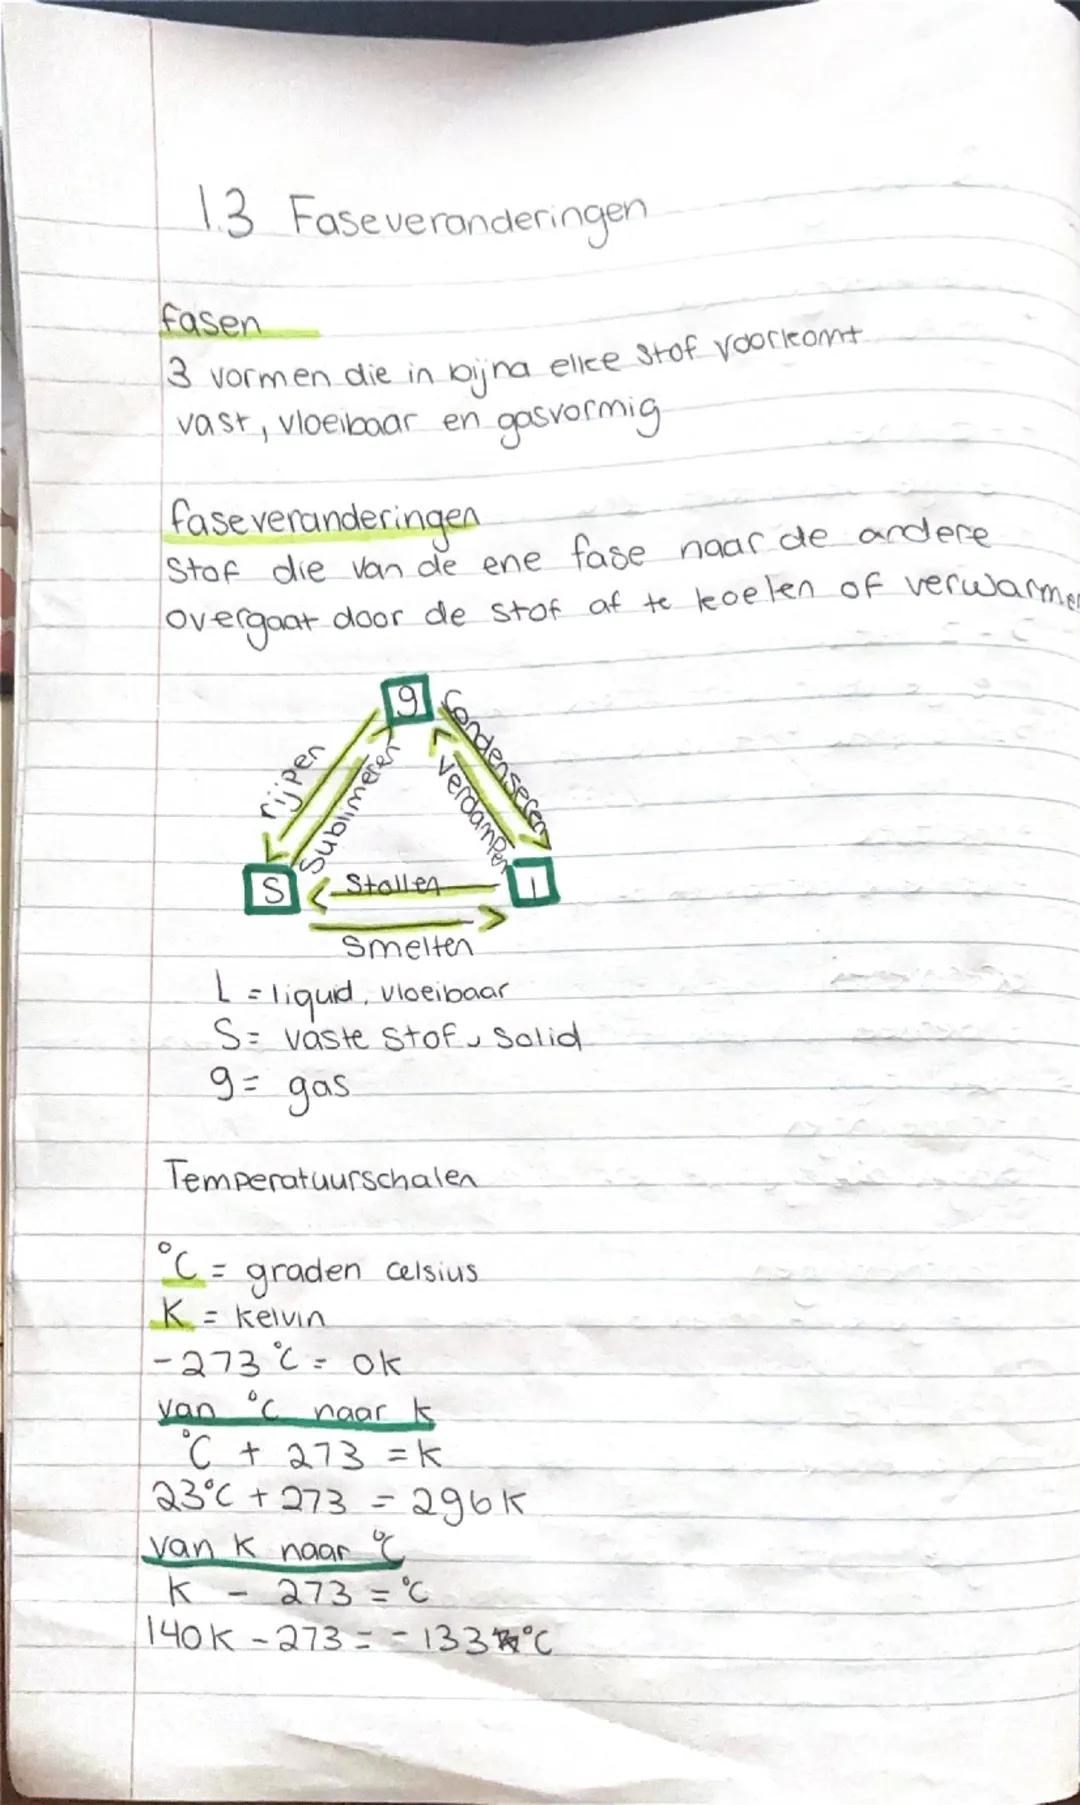 1.3 Faseveranderingen
fasen
3 vormen die in bijna elke stof voorkomt
vast, vloeibaar en gasvormig
faseveranderingen
Stof die van de ene fase naar de andere
overgaat door de stof af te koelen of verwarmen
g
condenseren
rijpen
sublimeren
verdampen
S
Stollen
l
Smelten
L = liquid, vloeibaar
S = vaste stof, solid
g = gas
Temperatuurschalen
°C = graden celsius
K = kelvin
-273 °C = 0k
van °C naar k
°C + 273 = k
23°C + 273 = 296k
van K naar °C
k - 273 = °C
140k - 273 = -133 °C